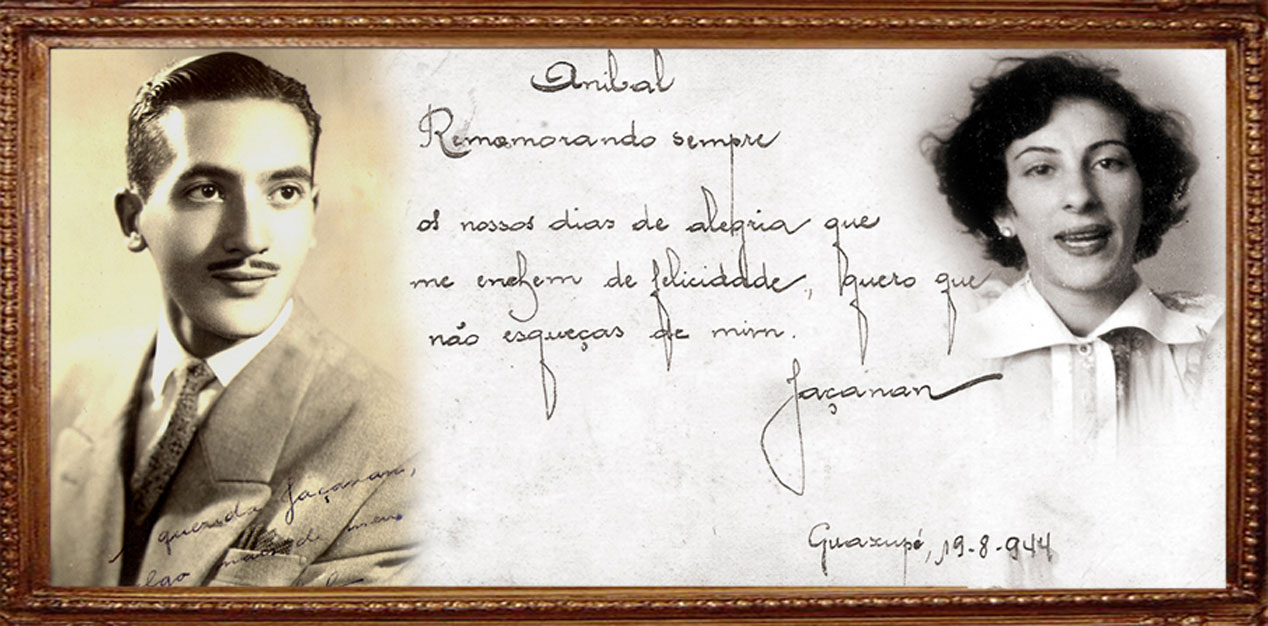 Anibal
Rememorando sempre
os nossos dias de alegria que
me enchem de felicidade, quero que
não esqueças de mim.
Jaçanan
Guaxupé, 19-8-944
A querida Jaçanan,
algo mais de meu